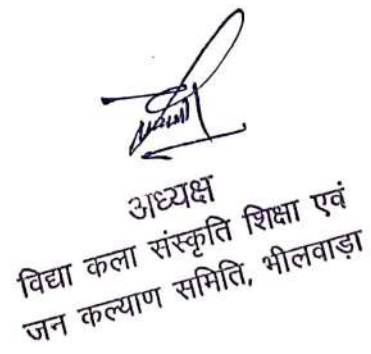 अध्यक्ष
विद्या कला संस्कृति शिक्षा एवं
जन कल्याण समिति, भीलवाड़ा